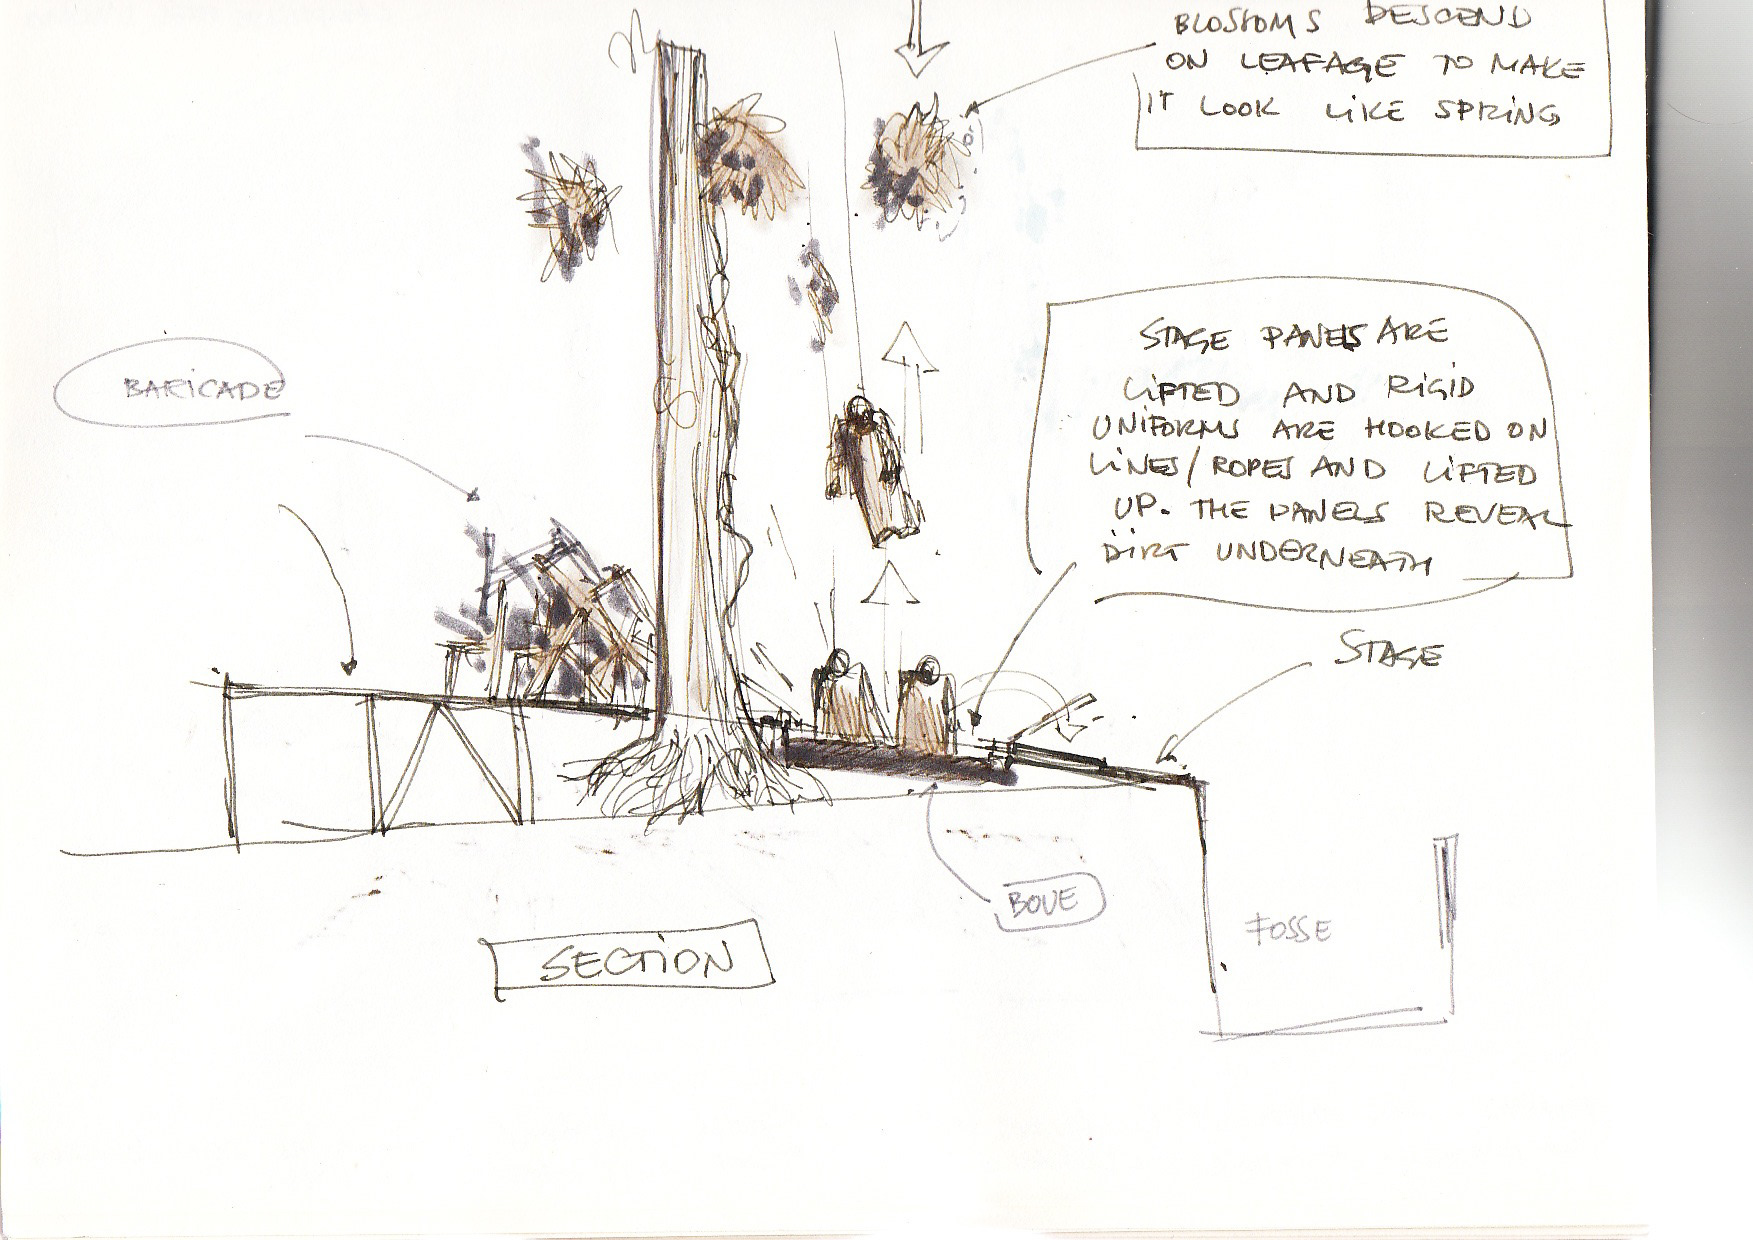 BLOSSOMS DESCEND
ON LEAFAGE TO MAKE
IT LOOK LIKE SPRING
BARICADE
STAGE PANELS ARE
LIFTED AND RIGID
UNIFORMS ARE HOOKED ON
LINES/ROPES AND LIFTED
UP. THE PANELS REVEAL
DIRT UNDERNEATH
STAGE
BOUE
FOSSE
SECTION